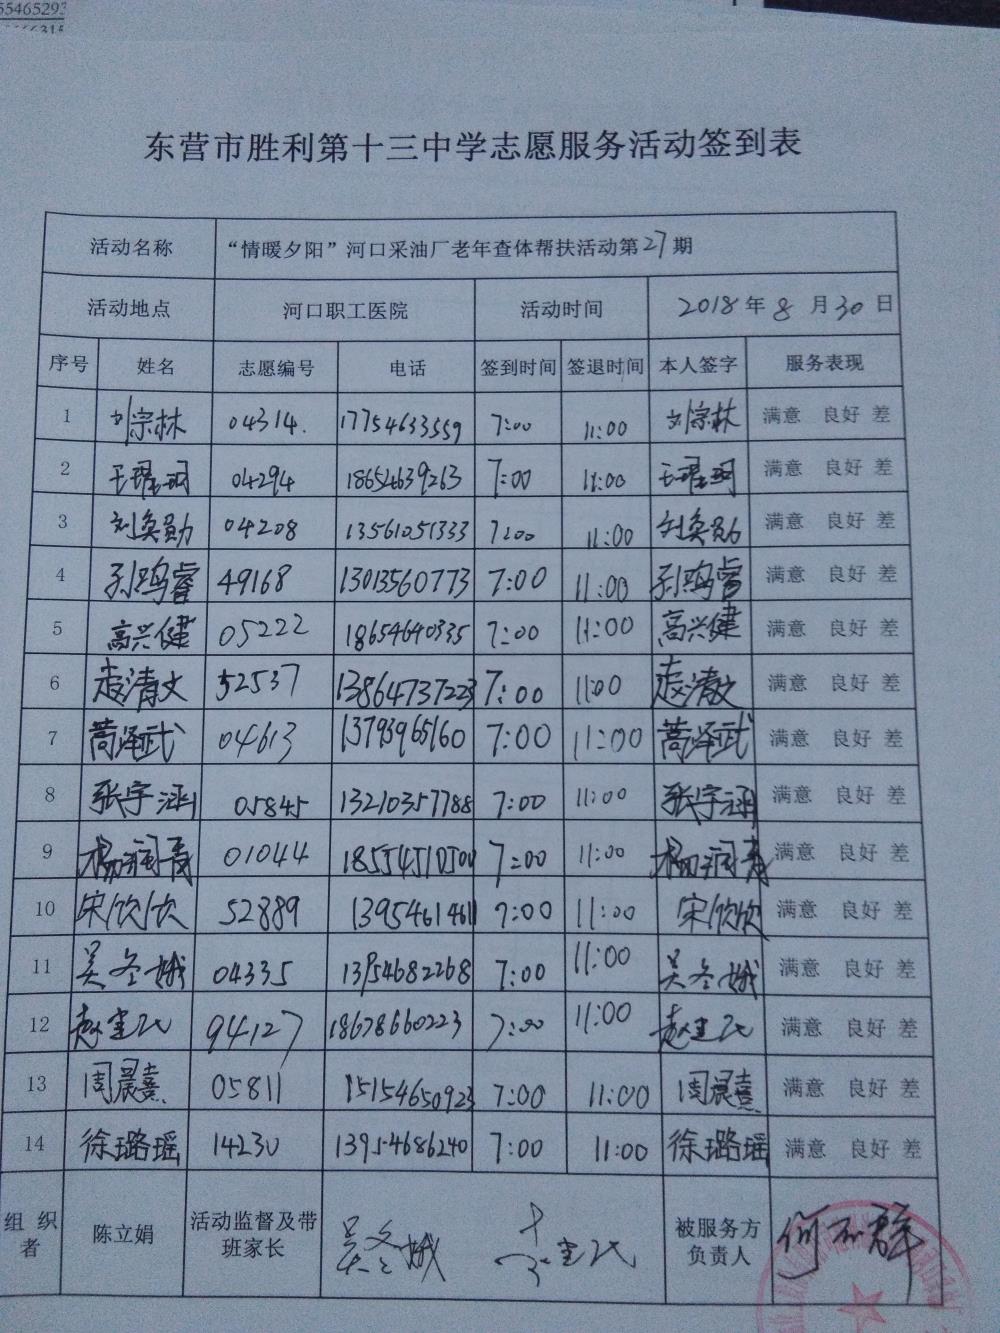 55465293
东营市胜利第十三中学志愿服务活动签到表
活动名称 “情暖夕阳”河口采油厂老年查体帮扶活动第27期
活动地点 河口职工医院 活动时间 2018年8月30日
序号 姓名 志愿编号 电话 签到时间 签退时间 本人签字 服务表现
1 刘宗林 04314. 17754633559 7:00 11:00 刘宗林 满意 良好 差
2 王珺珂 04294 18654639263 7:00 11:00 王珺珂 满意 良好 差
3 刘奂勋 04208 13561051333 7:00 11:00 刘奂勋 满意 良好 差
4 孙鸣睿 49168 13013560773 7:00 11:00 孙鸣睿 满意 良好 差
5 高兴健 05222 18654640335 7:00 11:00 高兴健 满意 良好 差
6 赵清文 52537 13864737223 7:00 11:00 赵清文 满意 良好 差
7 蔄泽武 04613 13793965160 7:00 11:00 蔄泽武 满意 良好 差
8 张宇涵 05845 13210357788 7:00 11:00 张宇涵 满意 良好 差
9 杨润青 01044 18554510500 7:00 11:00 杨润青 满意 良好 差
10 宋欣欣 52889 13954614611 7:00 11:00 宋欣欣 满意 良好 差
11 吴冬娥 04335 13954682268 7:00 11:00 吴冬娥 满意 良好 差
12 94127 18678660223 7:00 11:00 满意 良好 差
13 周晨熹 05811 15154650923 7:00 11:00 周晨熹 满意 良好 差
14 徐璐瑶 14230 13954686240 7:00 11:00 徐璐瑶 满意 良好 差
组织者 陈立娟 活动监督及带班家长 吴冬娥 被服务方负责人 何丕群